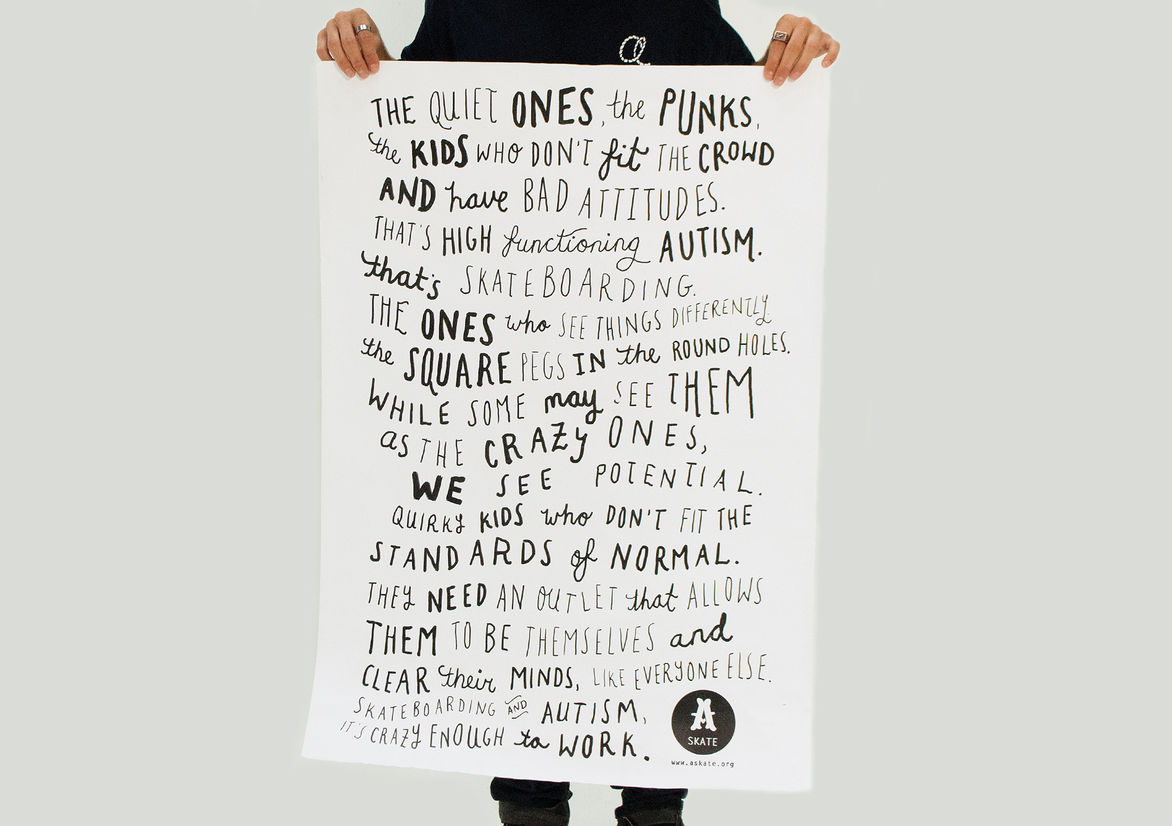 a
THE QUIET ONES, the PUNKS,
the KIDS WHO DON'T fit THE CROWD
AND have BAD ATTITUDES.
THAT'S HIGH functioning AUTISM.
that's SKATEBOARDING.
THE ONES who SEE THINGS DIFFERENTLY
the SQUARE PEGS IN the ROUND HOLES.
WHILE SOME may SEE THEM
as THE CRAZY ONES,
WE SEE POTENTIAL.
QUIRKY KIDS who DON'T FIT THE
STANDARDS of NORMAL.
THEY NEED AN OUTLET that ALLOWS
THEM TO BE THEMSELVES and
CLEAR their MINDS, LIKE EVERYONE ELSE.
SKATEBOARDING AND AUTISM,
IT'S CRAZY ENOUGH to WORK.
A
SKATE
www.askate.org